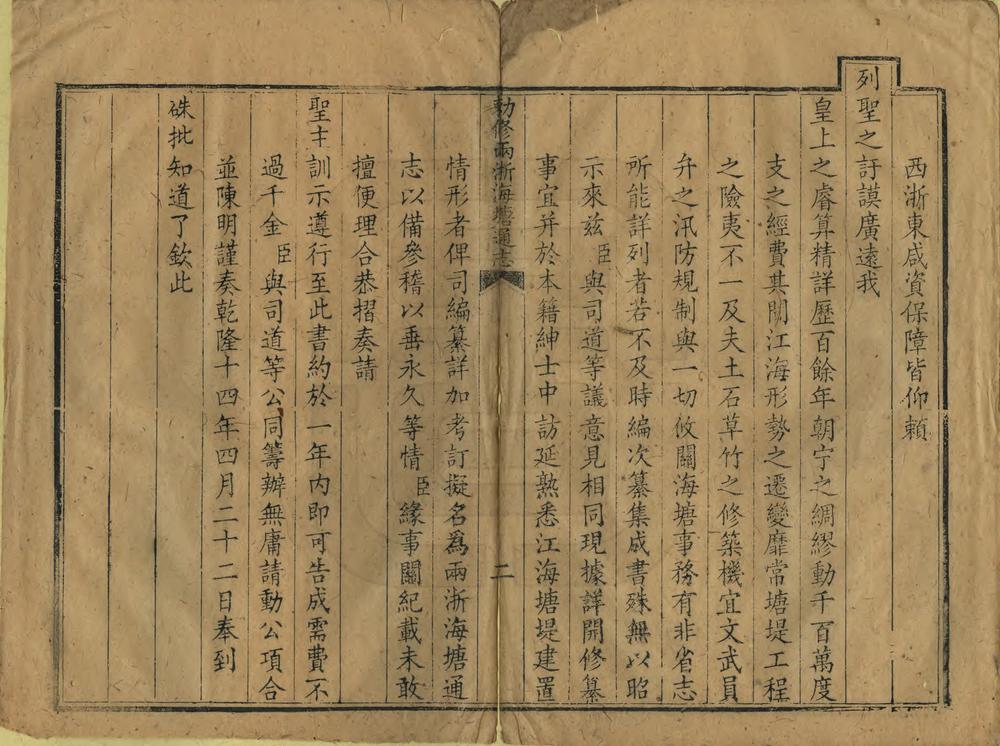 西浙東咸資保障皆仰賴
列聖之訏謨廣遠我
皇上之睿算精詳歷百餘年朝宁之綢繆動千百萬度
支之經費其間江海形勢之遷變靡常塘堤工程
之險夷不一及夫土石草竹之修築機宜文武員
弁之汛防規制與一切攸關海塘事務有非省志
所能詳列者若不及時編次纂集成書殊無以昭
示來茲臣與司道等議意見相同現據詳開修纂
事宜并於本籍紳士中訪延熟悉江海塘堤建置
勅修兩浙海塘通志
二
情形者俾司編纂詳加考訂擬名為兩浙海塘通
志以備參稽以垂永久等情臣緣事關紀載未敢
擅便理合恭摺奏請
聖主訓示遵行至此書約於一年內即可告成需費不
過千金臣與司道等公同籌辦無庸請動公項合
並陳明謹奏乾隆十四年四月二十二日奉到
硃批知道了欽此